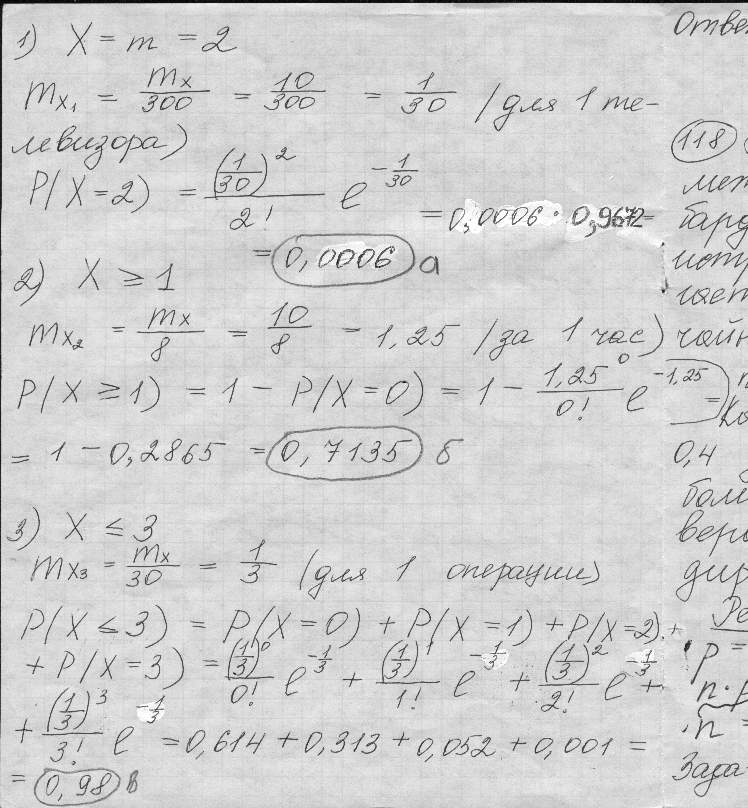 1) X = m = 2
m_{x_1} = \frac{m_x}{300} = \frac{10}{300} = \frac{1}{30} /для 1 те-
левизора)
P(X=2) = \frac{(\frac{1}{30})^2}{2!} e^{-\frac{1}{30}} = 0,0006 · 0,9672=
= 0,0006 а
2) X ≥ 1
m_{x_2} = \frac{m_x}{8} = \frac{10}{8} = 1,25 /за 1 час)
P(X ≥ 1) = 1 - P(X=0) = 1 - \frac{1,25^0}{0!} e^{-1,25} =
= 1 - 0,2865 = 0,7135 б
3) X ≤ 3
m_{x_3} = \frac{m_x}{30} = \frac{1}{3} (для 1 операции)
P(X ≤ 3) = P(X=0) + P(X=1) + P(X=2) +
+ P(X=3) = \frac{(\frac{1}{3})^0}{0!} e^{-\frac{1}{3}} + \frac{(\frac{1}{3})^1}{1!} e^{-\frac{1}{3}} + \frac{(\frac{1}{3})^2}{2!} e^{-\frac{1}{3}} +
+ \frac{(\frac{1}{3})^3}{3!} e^{-\frac{1}{3}} = 0,614 + 0,313 + 0,052 + 0,001 =
= 0,98 в
Отве
118
мет
бард
гает
чайн
0,4
боль
веро
дир
Ре
p =
n·p
n =
Зада